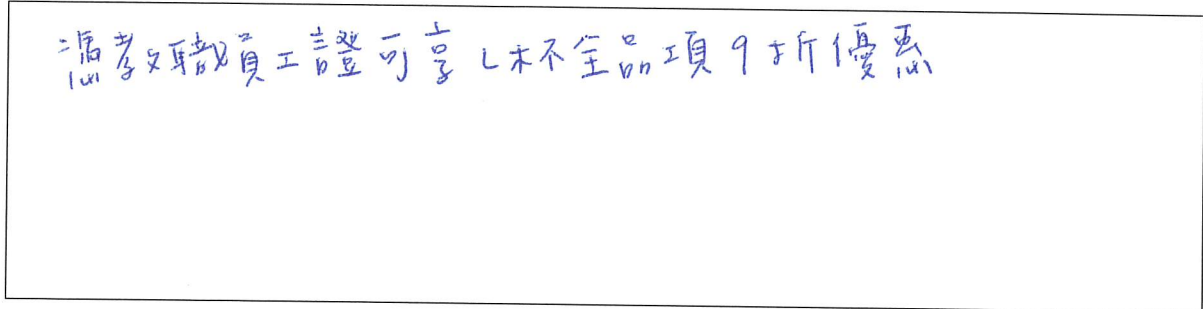 憑教職員工證可享L杯全品項9折優惠